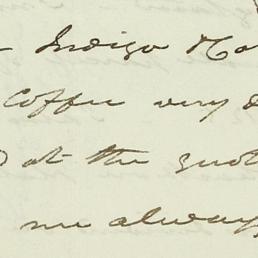 Indigo
Coffee very
at the
me always